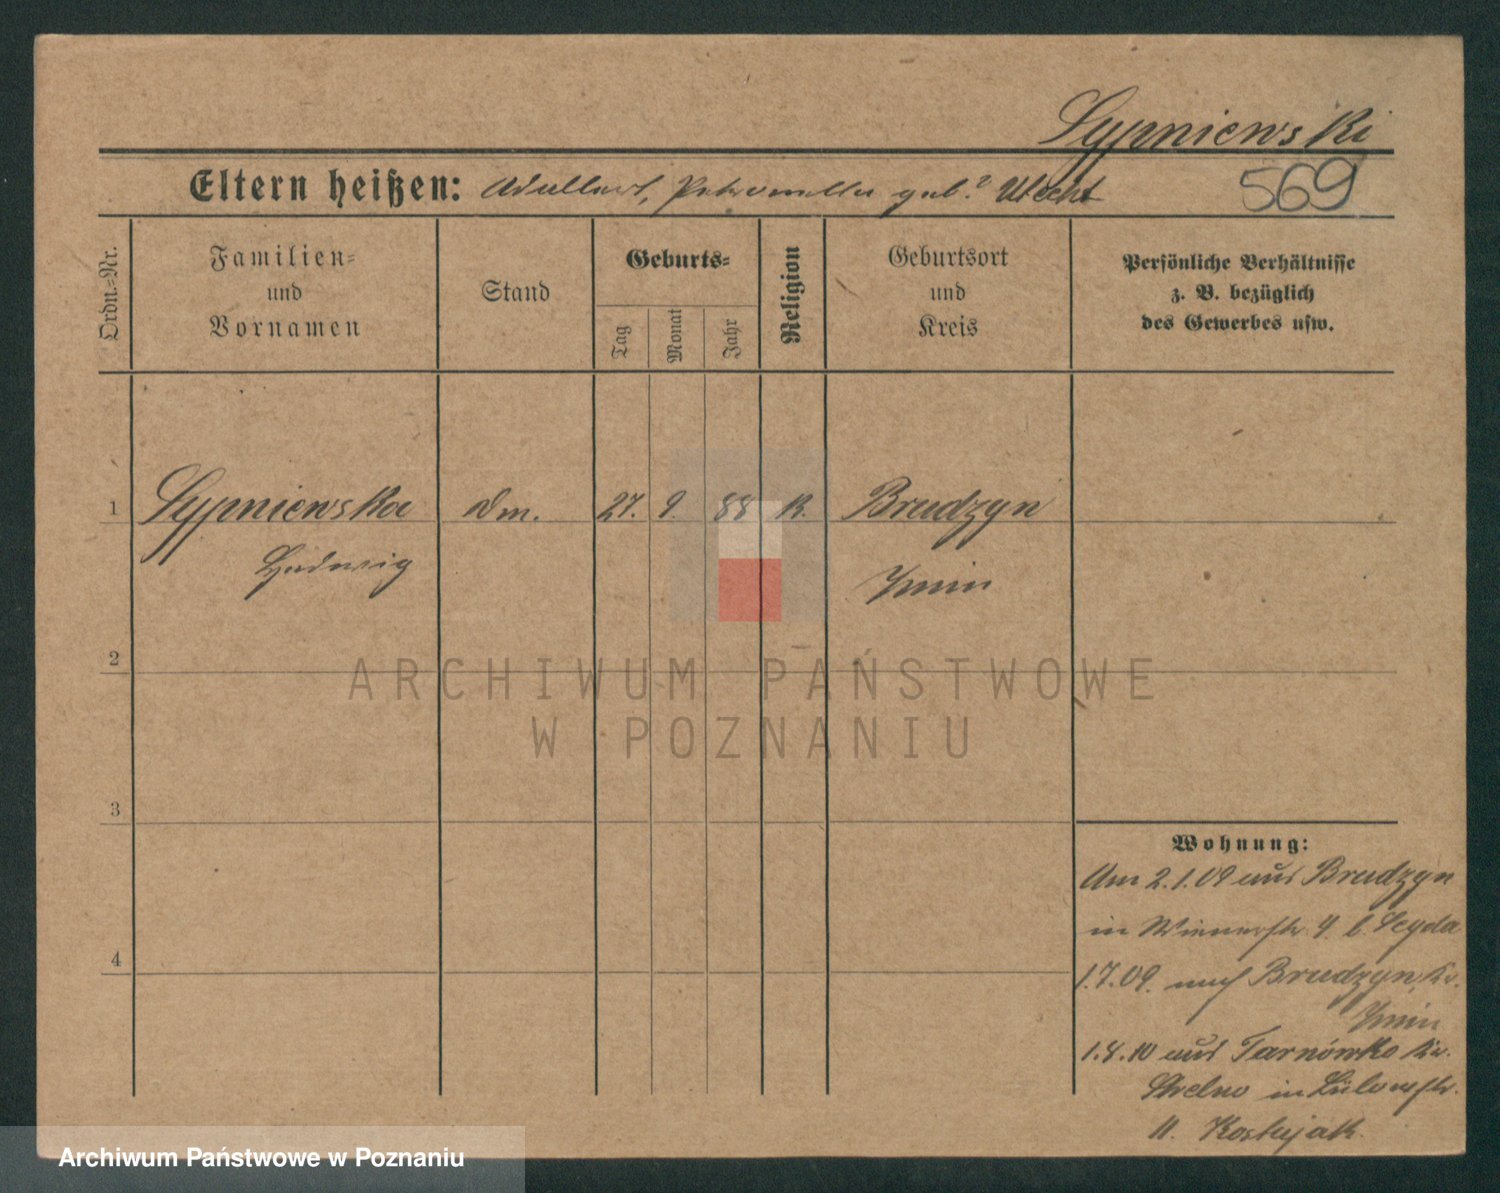 Sypniewski
Eltern heißen: Adalbert, Petronella geb. Utecht
569
Ordn.-Nr.
Familien-
und
Vornamen
Stand
Geburts-
Tag
Monat
Jahr
Religion
Geburtsort
und
Kreis
Persönliche Verhältnisse
z. B. bezüglich
des Gewerbes usw.
1 Sypniewska Dm. 27. 9. 88 K. Brudzyn
Hedwig Znin
2
3
4
Wohnung:
Am 2.1.09 aus Brudzyn
in Wienerstr. 4 b. Seyda
1.7.09. nach Brudzyn, Kr.
Znin
1.4.10 aus Tarnówko Kr.
Strelno in
11. Kostujak
ARCHIWUM PAŃSTWOWE
W POZNANIU
Archiwum Państwowe w Poznaniu